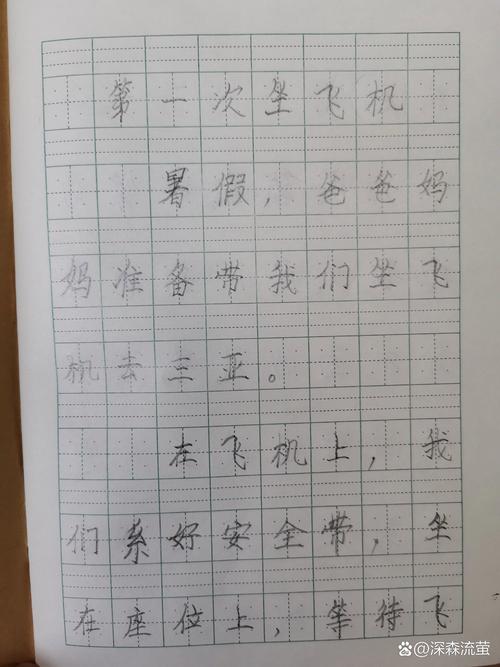 第一次坐飞机
暑假，爸爸妈
妈准备带我们坐飞
机去三亚。
在飞机上，我
们系好安全带，坐
在座位上，等待飞
@深森流萤